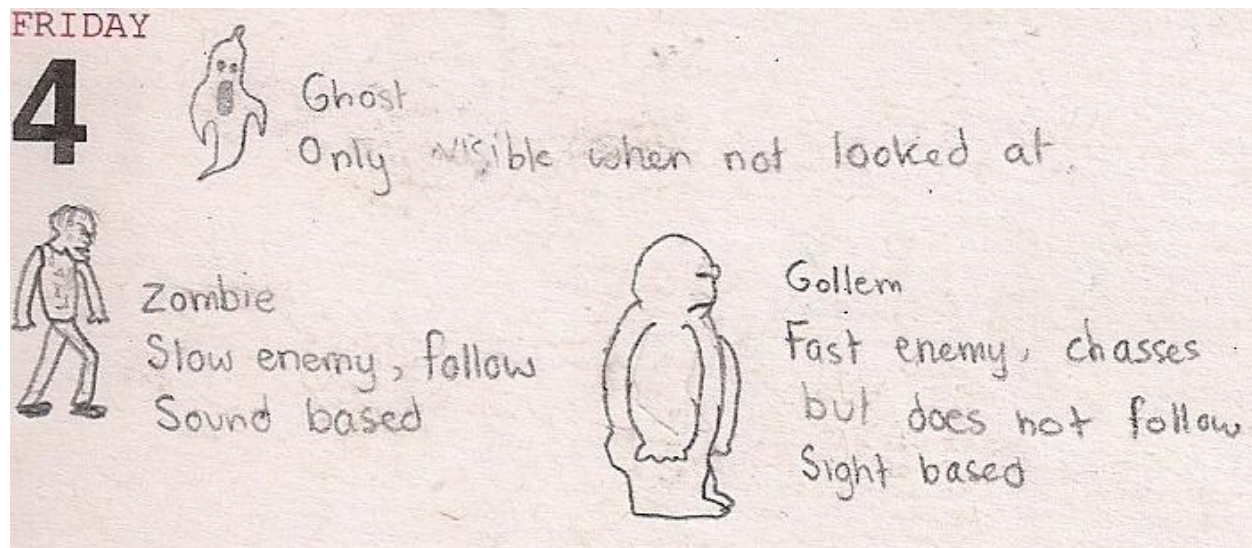 FRIDAY
4
Ghost
Only visible when not looked at.
Zombie
Slow enemy, follow
Sound based
Gollem
Fast enemy, chasses
but does not follow
Sight based